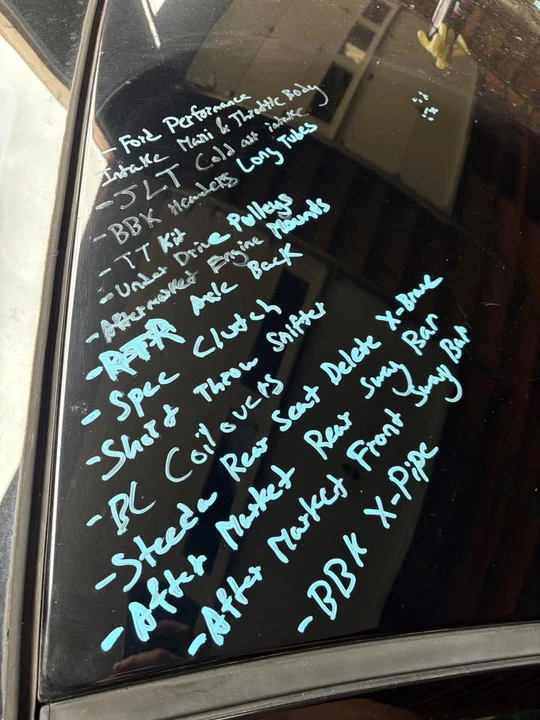 - Ford Performance
Intake Mani & Throttle Body
- JLT Cold air intake
- BBK Headers Long Tubes
- TT Kit
- Under Drive Pulleys
- Aftermarket Engine Mounts
- RTR Axle Back
- Spec Clutch
- Short Throw Shifter
- BC Coilovers
- Steeda Rear Seat Delete X-Brace
- After Market Rear Sway Bar
- After Market Front Sway Bar
- BBK X-Pipe